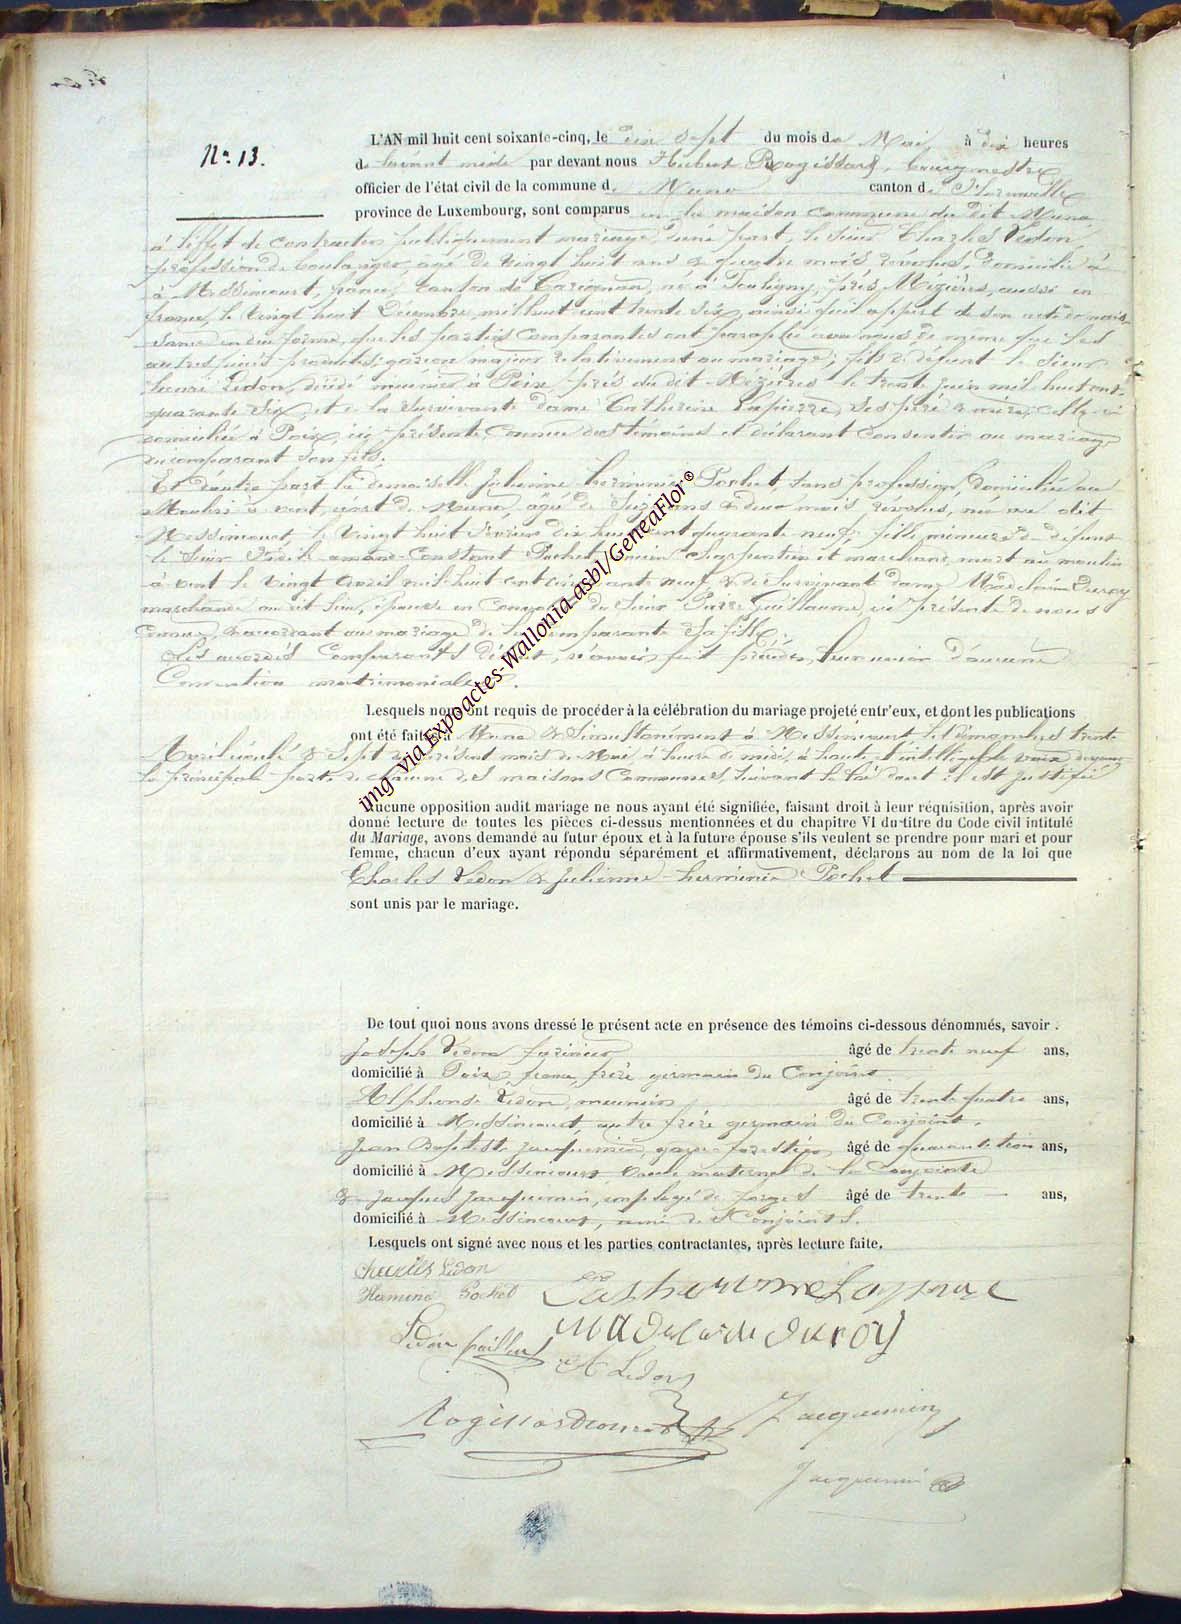 Nº 13.
L'AN mil huit cent soixante-cinq, le dix sept du mois de Mai, à dix heures
de avant midi par devant nous Hubert Rogissart, bourgmestre
officier de l'état civil de la commune de Muno canton de Florenville
province de Luxembourg, sont comparus en la maison commune du dit Muno
à l'effet de contracter publiquement mariage, d'une part, le sieur Charles Ledon,
profession de boulanger, âgé de vingt huit ans & quatre mois révolus, domicilié à
à Messincourt, france, Canton de Carignan, né à près Mézières, aussi en
france, le vingt huit Décembre mil huit cent trente six, ainsi qu'il appert de son acte de nais-
sance en due forme, que les parties Comparantes ont paraphé avec nous de même que les
autres pièces produites, garçon majeur relativement au mariage, fils de défunt le sieur
henri Ledon, décédé meunier à Poix près du dit Mézières le trente juin mil huit cent
quarante six, et de la survivante dame Catherine Lapierre, ses père & mère, celle-ci
domiciliée à Poix, ici présente, Connue des témoins et déclarant consentir au mariage
du comparant son fils.
Et d'autre part la demoiselle Julienne herminie Pochet, sans profession, domiciliée au
Moulin à vent, de Muno, âgée de seize ans & deux mois révolus, née au dit
Messincourt, le vingt huit février dix huit cent quarante neuf, fille mineure de défunt
le sieur amand Constant Pochet, charpentier et marchand, mort au moulin
à vent le vingt avril mil huit cent cinquante neuf & de survivante dame Madelaine Duroy
marchande au dit lieu, épouse en du sieur Pierre Guillaume, ici présente de nous
Connue, & accordant au mariage de la comparante sa fille.
Les accordés Comparants n'avoir fait d'aucune
Convention matrimoniale.
Lesquels nous ont requis de procéder à la célébration du mariage projeté entr'eux, et dont les publications
ont été faites à Muno & Simultanément à Messincourt les dimanches trente
Avril écoulé & Sept du présent mois de Mai, à heure de midi, à haute & intelligible voix devant
la principale porte de chacune des maisons Communes, suivant la loi dont il est justifié
Aucune opposition audit mariage ne nous ayant été signifiée, faisant droit à leur réquisition, après avoir
donné lecture de toutes les pièces ci-dessus mentionnées et du chapitre VI du titre du Code civil intitulé
du Mariage, avons demandé au futur époux et à la future épouse s'ils veulent se prendre pour mari et pour
femme, chacun d'eux ayant répondu séparément et affirmativement, déclarons au nom de la loi que
Charles Ledon & Julienne-herminie Pochet
sont unis par le mariage.
De tout quoi nous avons dressé le présent acte en présence des témoins ci-dessous dénommés, savoir :
Joseph Ledon farinier, âgé de trente neuf ans,
domicilié à Poix, france, frère germain du Conjoint.
Alphonse Ledon, meunier, âgé de trente quatre ans,
domicilié à Messincourt, autre frère germain du Conjoint.
Jean Baptiste Jacquemin, garde forestier, âgé de quarante trois ans,
domicilié à Messincourt, oncle maternel de la Conjointe
& Jacques Jacquemin, employé de forges âgé de trente ans,
domicilié à Messincourt, ami des Conjoints.
Lesquels ont signé avec nous et les parties contractantes, après lecture faite.
Charles Ledon
Pochet Catherinne Lapierre
Ledon Madelaine duroy
A Ledon
Rogissart Jacquemin
Jacquemin
img via Expoactes-Wallonia asbl/GeneaFlor®